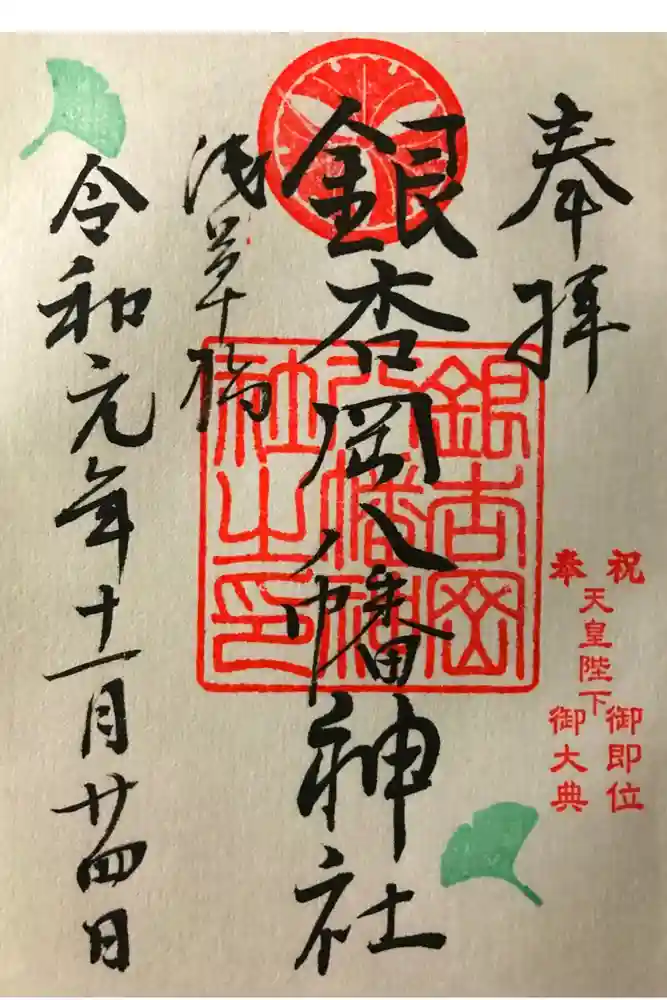 奉拝
祝 天皇陛下 御即位
奉 御大典
銀杏岡八幡神社
銀杏岡
八幡神
社之印
浅草橋
令和元年十一月廿四日